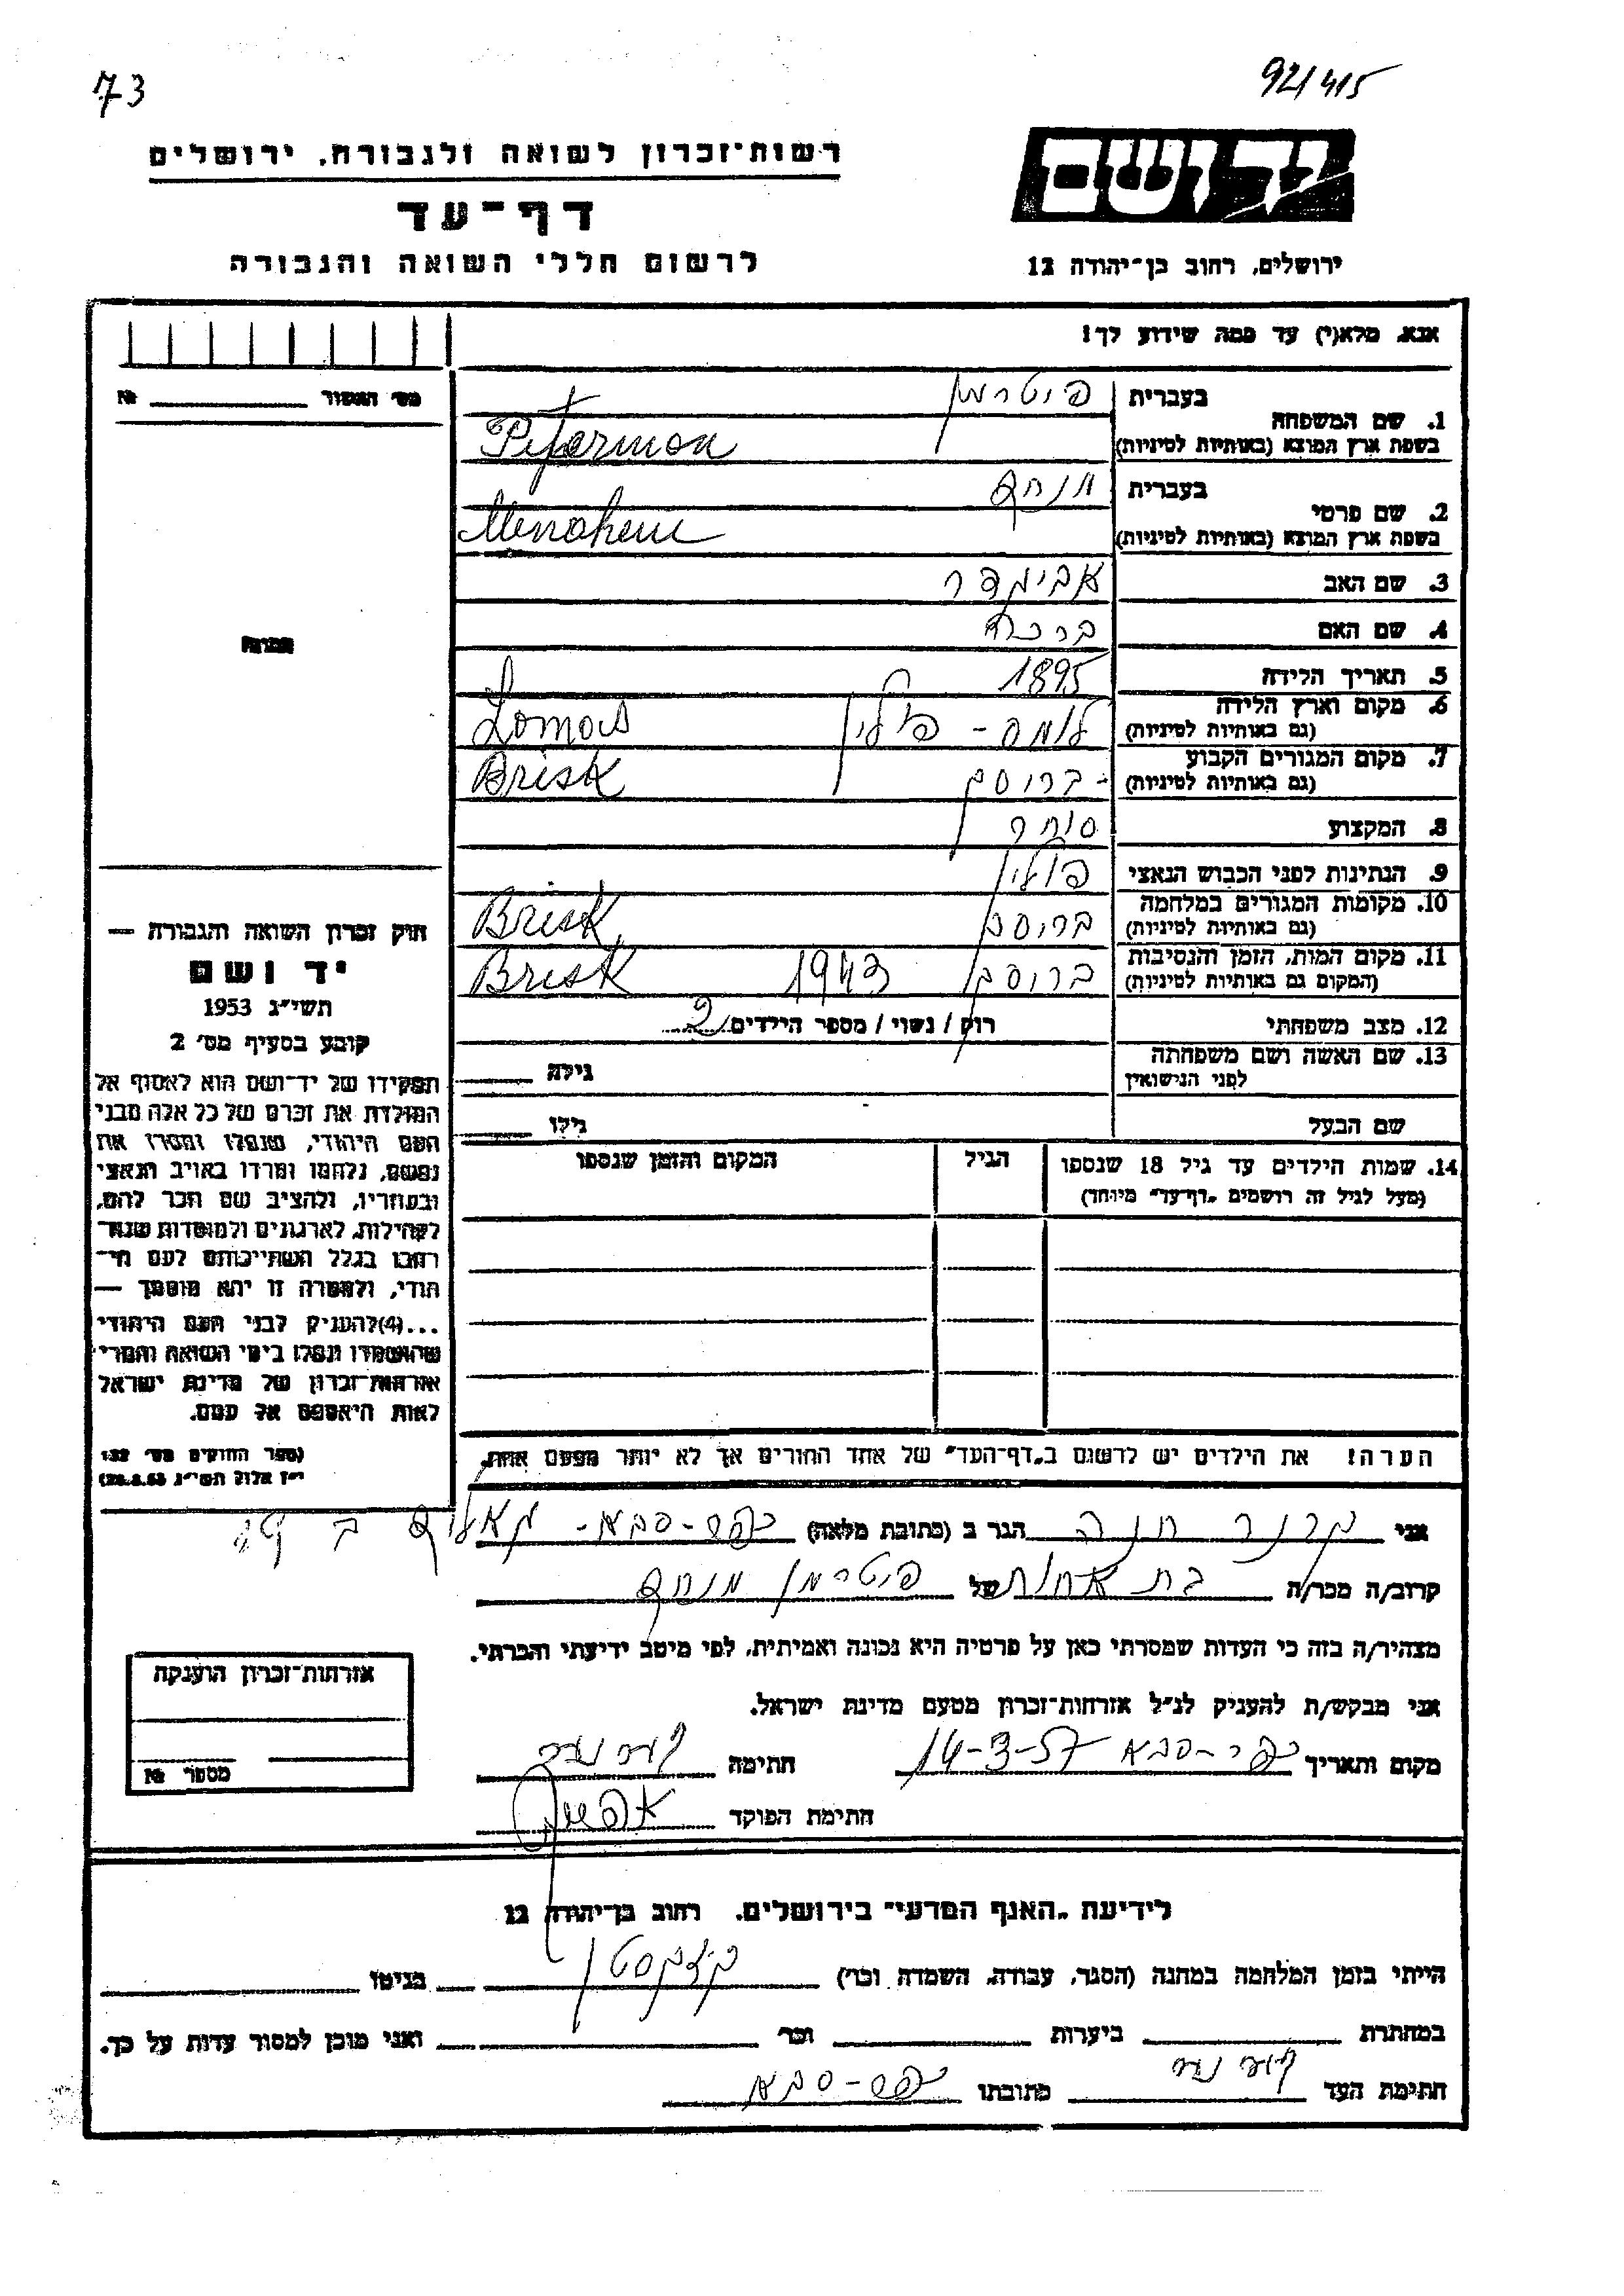 73
92/415
רשות־זכרון לשואה ולגבורה, ירושלים
דף־עד
לרשום חללי השואה והגבורה
יד ושם
ירושלים, רחוב בן־יהודה 12
אנא, מלא(י) עד כמה שידוע לך!
מס׳ האשור № 
1. שם המשפחה
בעברית פיטרמן
בשפת ארץ המוצא (באותיות לטיניות) Pitarman
2. שם פרטי
בעברית מנחם
בשפת ארץ המוצא (באותיות לטיניות) Menahem
3. שם האב
4. שם האם ברכה
5. תאריך הלידה 1895
6. מקום וארץ הלידה לומס - פולין
(גם באותיות לטיניות) Lomas
7. מקום המגורים הקבוע בריסק
(גם באותיות לטיניות) Brisk
8. המקצוע סוחר
9. הנתינות לפני הכבוש הנאצי פולין
10. מקומות המגורים במלחמה בריסק
(גם באותיות לטיניות) Brisk
11. מקום המות, הזמן והנסיבות בריסק 1943
(המקום גם באותיות לטיניות) Brisk
12. מצב משפחתי רווק / נשוי / מספר הילדים 2
13. שם האשה ושם משפחתה
לפני הנישואין
גילה
שם הבעל גילו
14. שמות הילדים עד גיל 18 שנספו
(מעל לגיל זה רושמים „דף־עד״ מיוחד)
הגיל
המקום והזמן שנספו
הערה! את הילדים יש לרשום ב„דף־העד״ של אחד ההורים אך לא יותר מפעם אחת.
תמונה
חוק זכרון השואה והגבורה —
יד ושם
תשי״ג 1953
קובע בסעיף מס׳ 2
תפקידו של יד־ושם הוא לאסוף אל
המולדת את זכרם של כל אלה מבני
העם היהודי, שנפלו ומסרו את
נפשם, נלחמו ומרדו באויב הנאצי
ובעוזריו, ולהציב שם וזכר להם,
לקהילות, לארגונים ולמוסדות שנח־
רבו בגלל השתייכותם לעם הי־
הודי, ולמטרה זו יהא מוסמך —
...(4)להעניק לבני העם היהודי
שהושמדו ונפלו בימי השואה והמרי
אזרחות־זכרון של מדינת ישראל
לאות היאספם אל עמם.
(ספר החוקים מס׳ 132
י״ז אלול תשי״ג 28.8.53)
אני קרנר חנה הגר ב (כתובת מלאה) כפר-סבא-
קרוב/ה מכר/ה בת אחות של פיטרמן מנחם
מצהיר/ה בזה כי העדות שמסרתי כאן על פרטיה היא נכונה ואמיתית, לפי מיטב ידיעתי והכרתי.
אני מבקש/ת להעניק לנ״ל אזרחות־זכרון מטעם מדינת ישראל.
מקום ותאריך כפר-סבא 14-3-57 חתימה
חתימת הפוקד
אזרחות־זכרון הוענקה
מספר №
לידיעת „האגף המדעי״ בירושלים. רחוב בן־יהודה 12
הייתי בזמן המלחמה במחנה (הסגר, עבודה, השמדה וכר׳) בגיטו
במחתרת ביערות וכר׳ ואני מוכן למסור עדות על כך.
חתימת העד כתובתו כפר-סבא